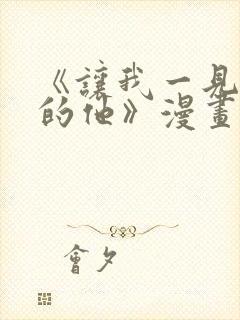 《讓我一見
的他》漫畫
會夕